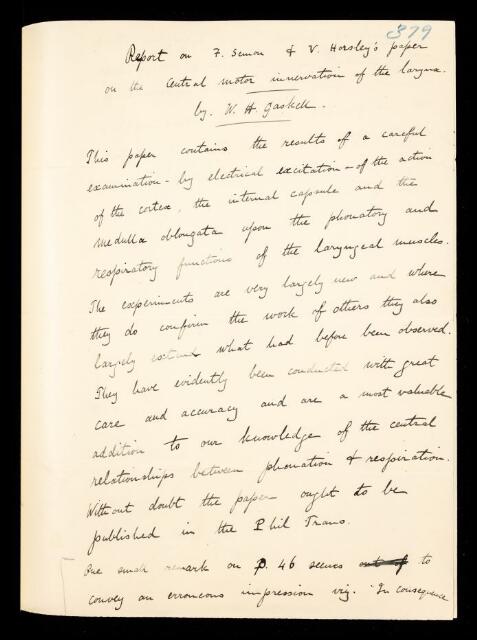 379
Report on F. Semon & V. Horsley's paper
on the Central motor innervation of the larynx.
by. W. H. Gaskell.
This paper contains the results of a careful
examination - by electrical excitation - of the action
of the cortex, the internal capsule and the
Medulla oblongata upon the phonatory and
respiratory functions of the laryngeal muscles.
The experiments are very largely new and where
they do confirm the work of others they also
largely extend what had before been observed.
They have evidently been conducted with great
care and accuracy and are a most valuable
addition to our knowledge of the central
relationships between phonation & respiration.
Without doubt the paper ought to be
published in the Phil Trans.
One small remark on p. 46 seems out of to
convey an erroneous impression viz. "In consequence